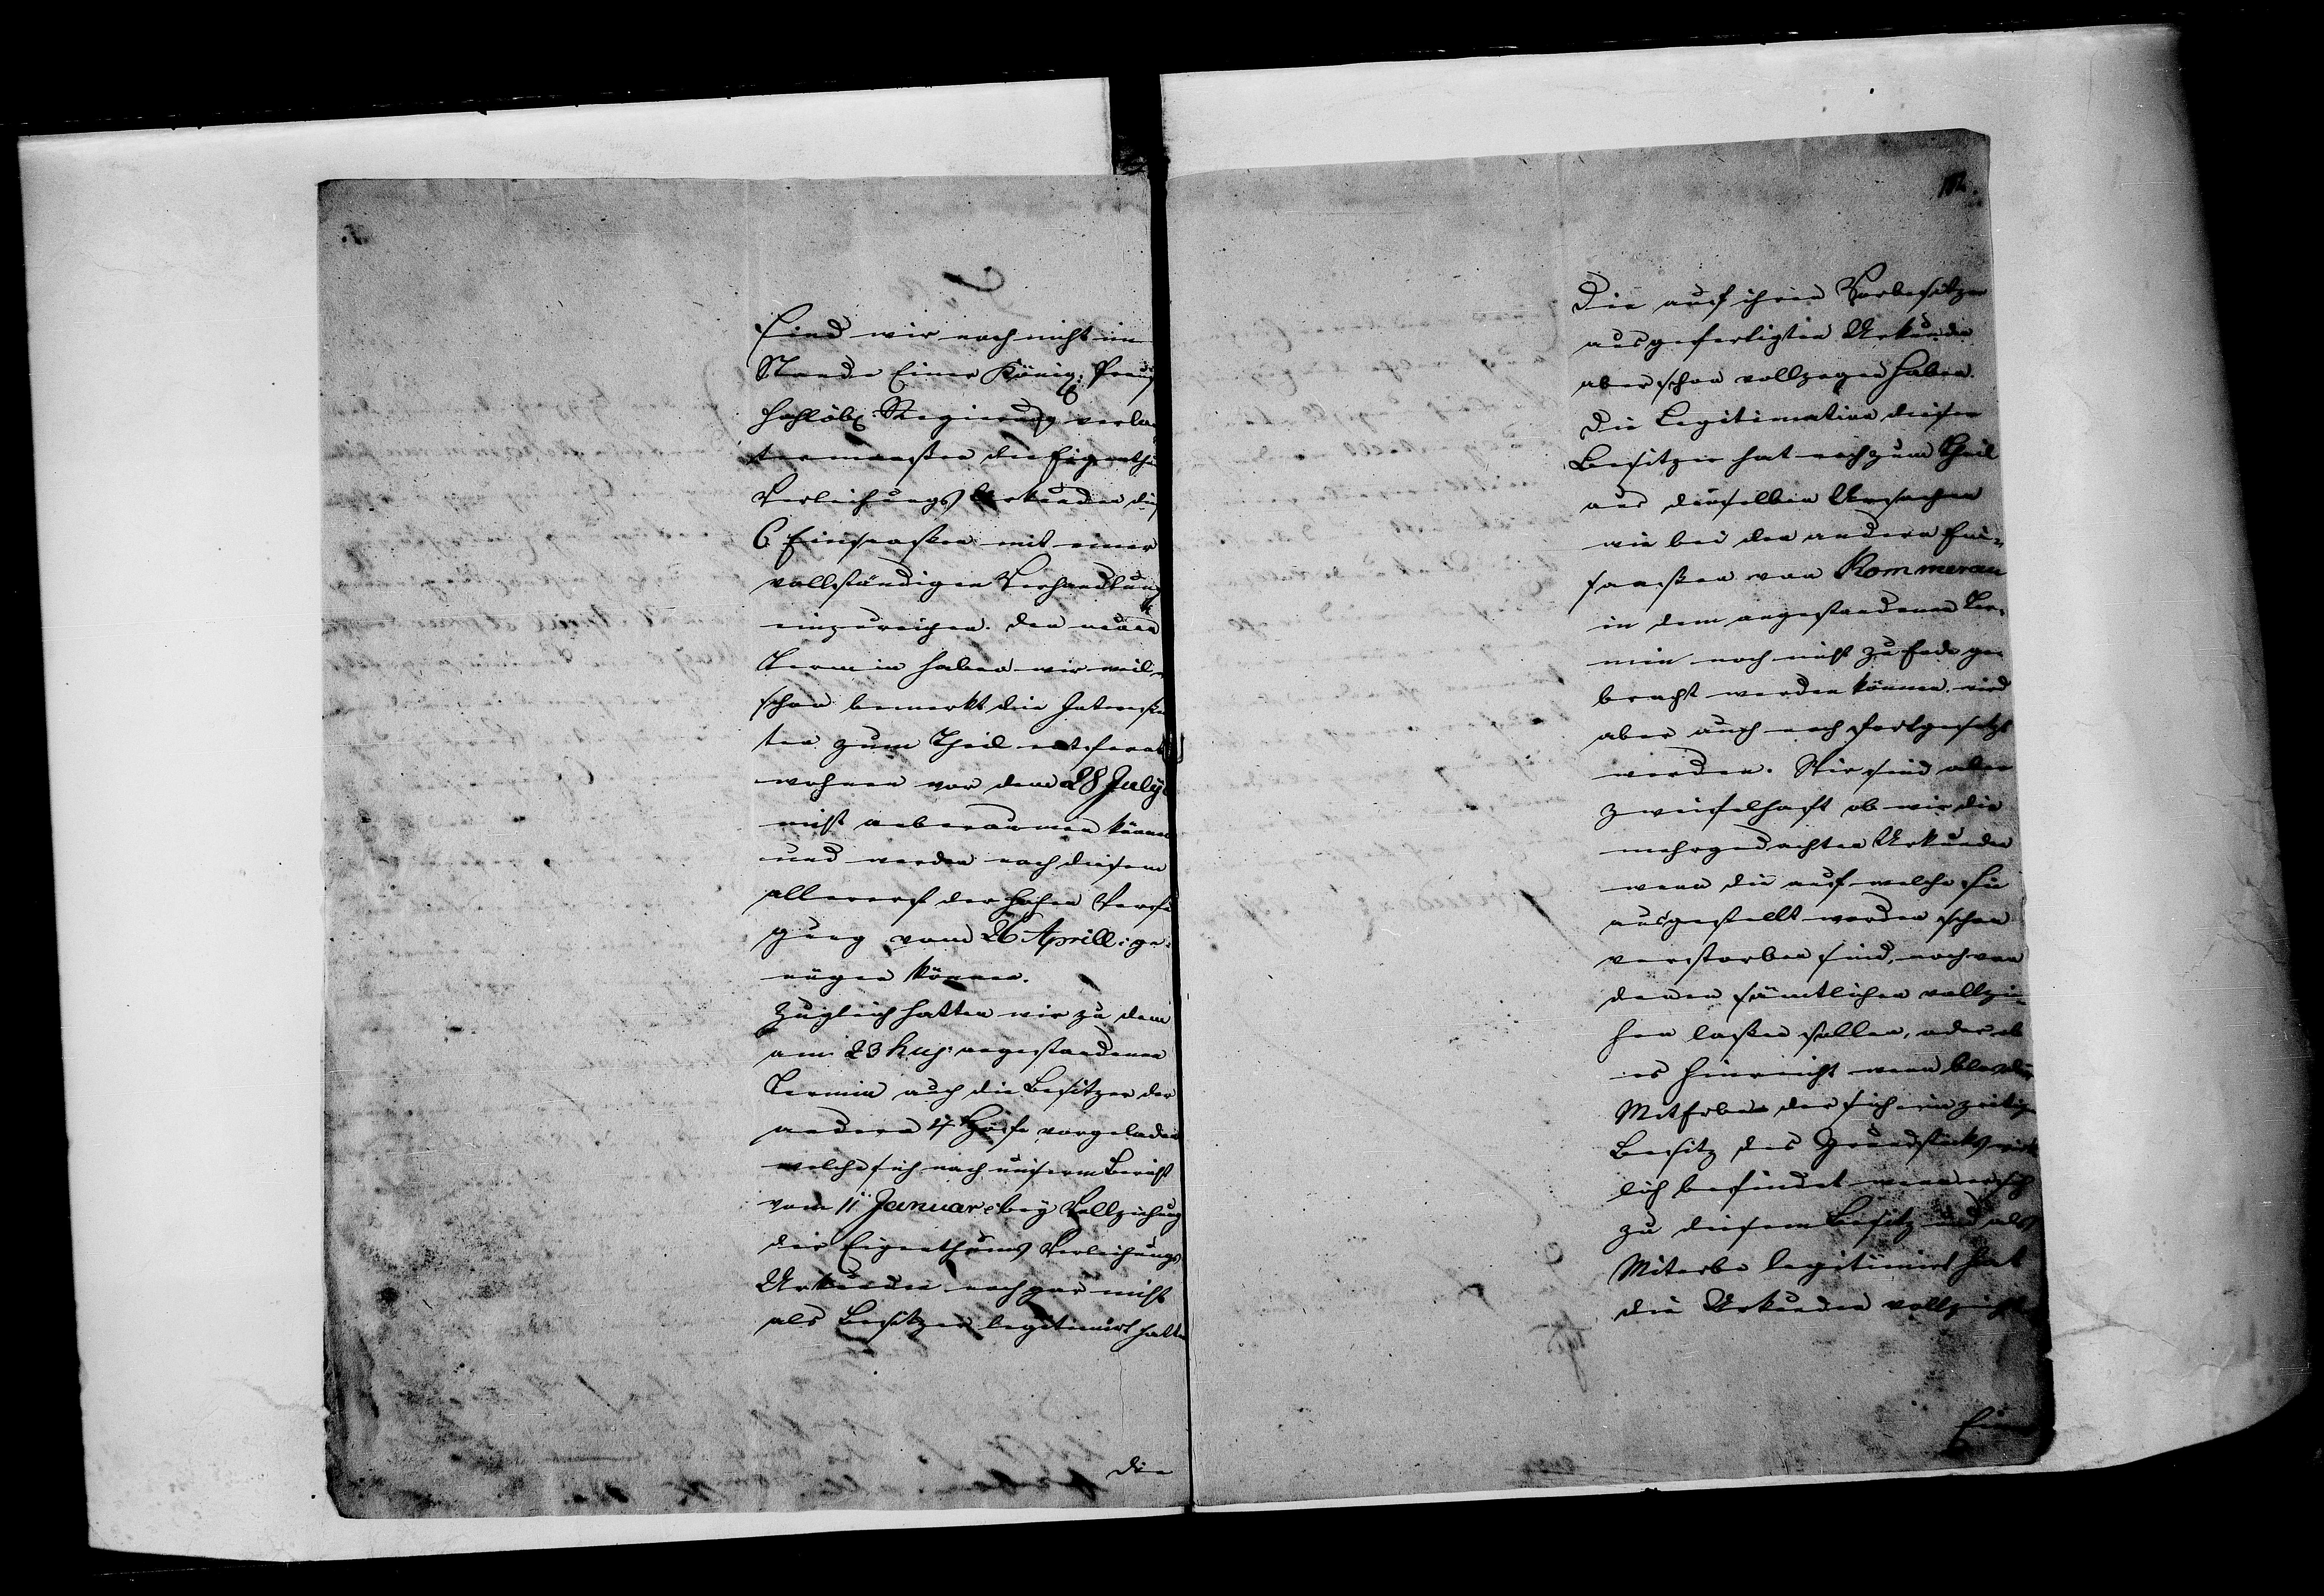 sind wir noch nicht im
Stande Einer Königl: Preuß
Hochlöbl: Regierung verlang
termaaßen die Eigenthums
Verleihungs Urkunden dieser
6 Einsaaßen mit einer
vollständigen Verhandlung
einzureichen. Den neuen
Termin haben wir weil
schon bemerkt die Interessen
ten zum Theil entfernt
wohnen vor dem 28 July
nicht anberaumen können
und werden nach diesem
allererst der hohen Verfü
gung vom 26 Aprill: ge-
nügen können.
Zugleich hatten wir zu dem
am 23 huj: angestandenen
Termin auch die Besitzer der
andern 4 Höfe vorgeladen
welche sich nach unserm Bericht
vom 11 Januar c bey Vollziehung
der Eigenthums Verleihungs
Urkunden noch gar nicht
als Besitzer legitimirt hatten
die
102.
Die auf ihren Vorbesitzer
ausgefertigten Urkunden
aber schon vollzogen haben.
Die Legitimation dieser
Besitzer hat auch zum Theil
aus denselben Ursachen
wie bei den andern Ein-
saaßen von Kommerau
in dem angestandenen Ter-
min noch nicht zu Ende ge-
bracht werden können, wird
aber auch noch fortgesetzt
werden. Wir sind aber
zweifelhaft ob wir die
mehrgedachten Urkunden
wenn die auf welche sie
ausgestellt worden schon
verstorben sind, noch von
denen sämtlichen vollzie-
hen laßen sollen, oder ob
es hinreicht wenn blos der
Miterbe der sich im zeitigen
Besitz des Grundstücks wirk
lich befindet wenn er sich
zu diesem Besitz und als
Miterbe legitimirt hat
die Urkunden vollzieht
Eine